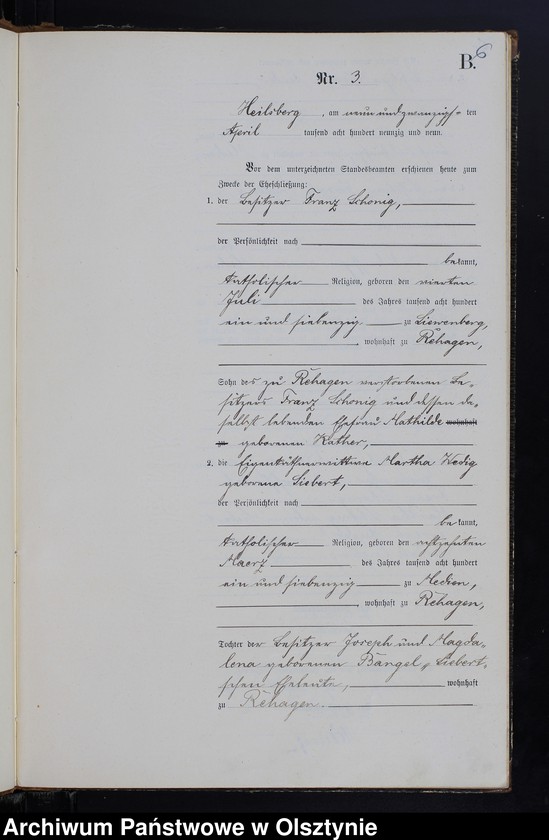 B.
6
Nr. 3.
Heilsberg, am neun und zwanzigs ten
April tausend acht hundert neunzig und neun.
Vor dem unterzeichneten Standesbeamten erschienen heute zum
Zwecke der Eheschließung:
1. der Besitzer Franz Schonig,
der Persönlichkeit nach
bekannt,
katholischer Religion, geboren den vierten
Juli des Jahres tausend acht hundert
ein und siebenzig zu Liewenberg,
, wohnhaft zu Rehagen,
Sohn des zu Rehagen verstorbenen Be-
sitzers Franz Schonig und dessen da-
selbst lebenden Ehefrau Mathilde wohnhaft
zu geborenen Kather,
2. die Eigenkäthnerwittwe Martha Wedig
geborene Siebert,
der Persönlichkeit nach
bekannt,
katholischer Religion, geboren den achtzehnten
Maerz des Jahres tausend acht hundert
ein und siebenzig zu Medien,
, wohnhaft zu Rehagen,
Tochter der Besitzer Joseph und Magda-
lena geborenen Bangel, Siebert-
schen Eheleute, wohnhaft
zu Rehagen.
Archiwum Państwowe w Olsztynie